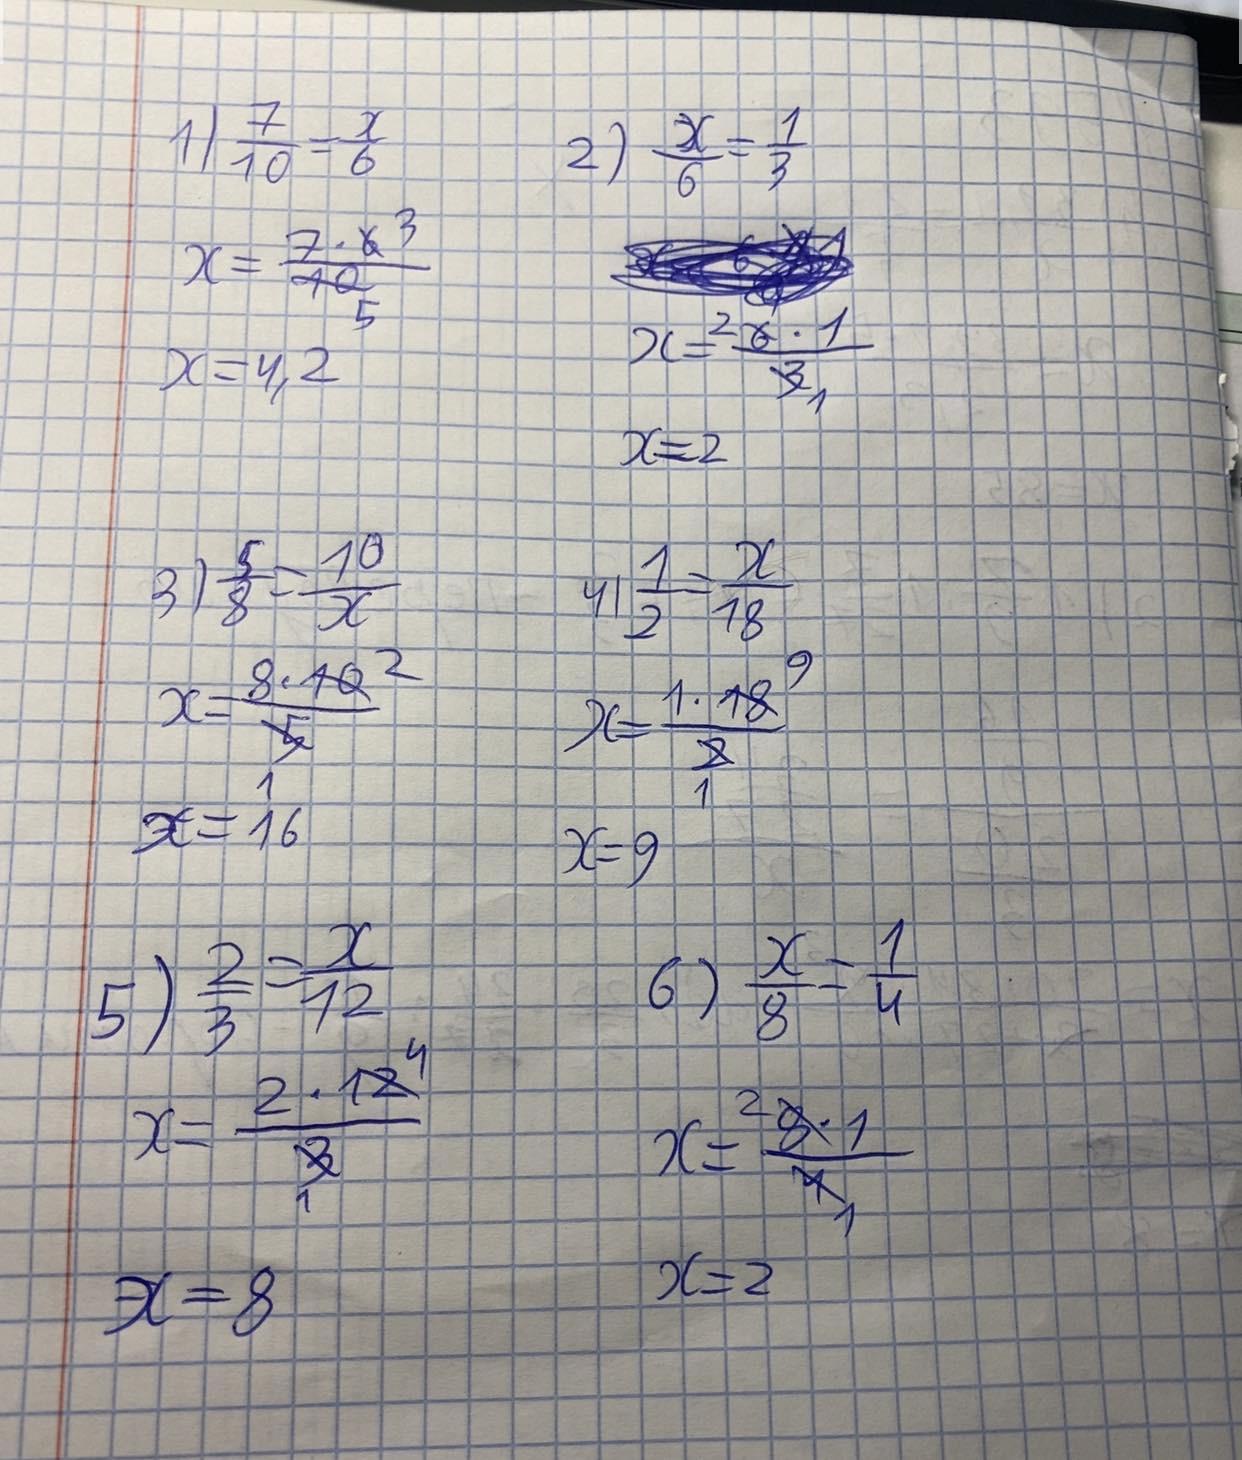 1) 7/10 = x/6
x = 7·6 3/10 5
x = 4,2
2) x/6 = 1/3
x = 2 6·1/3 1
x = 2
3) 5/8 = 10/x
x = 8·10 2/5 1
x = 16
4) 1/2 = x/18
x = 1·18 9/2 1
x = 9
5) 2/3 = x/12
x = 2·12 4/3 1
x = 8
6) x/8 = 1/4
x = 2 8·1/4 1
x = 2